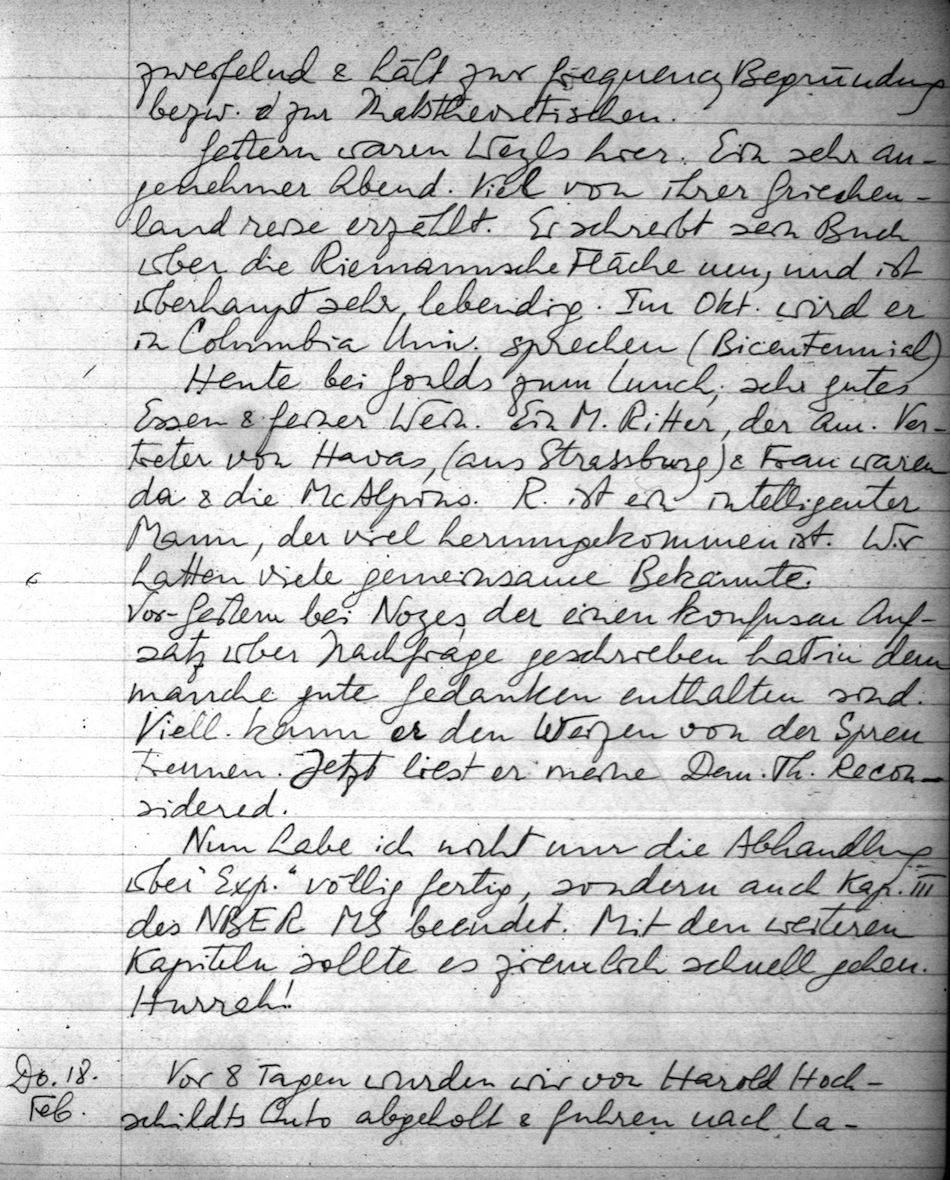 zweifelnd & hält zur frequency Begründung
bezw. zur Masstheoretischen.
Gestern waren Weyls hier. Ein sehr an-
genehmer Abend. Viel von ihrer Griechen-
landreise erzählt. Er schreibt sein Buch
über die Riemannsche Fläche neu, und ist
überhaupt sehr lebendig. Im Okt. wird er
in Columbia Univ. sprechen (Bicentennial)
Heute bei Goulds zum Lunch, sehr gutes
Essen & feiner Wein. Ein M. Ritter, der am. Ver-
treter von Havas, (aus Strassburg) & Frau waren
da & die McAlpins. R. ist ein intelligenter
Mann, der viel herumgekommen ist. Wir
hatten viele gemeinsame Bekannte.
Vor-Gestern bei Nozes, der einen konfusen Auf-
satz über Nachfrage geschrieben hat in dem
manche gute Gedanken enthalten sind.
Viell. kann er den Weizen von der Spreu
trennen. Jetzt liest er meine Dem. Th. Recon-
sidered.
Nun habe ich nicht nur die Abhandlung
über "Exp." völlig fertig, sondern auch Kap. III
des NBER MS beendet. Mit den weiteren
Kapiteln sollte es ziemlich schnell gehen.
Hurrah!
Do. 18. Vor 8 Tagen wurden wir von Harold Hoch-
Feb. schildts Auto abgeholt & fuhren nach La-